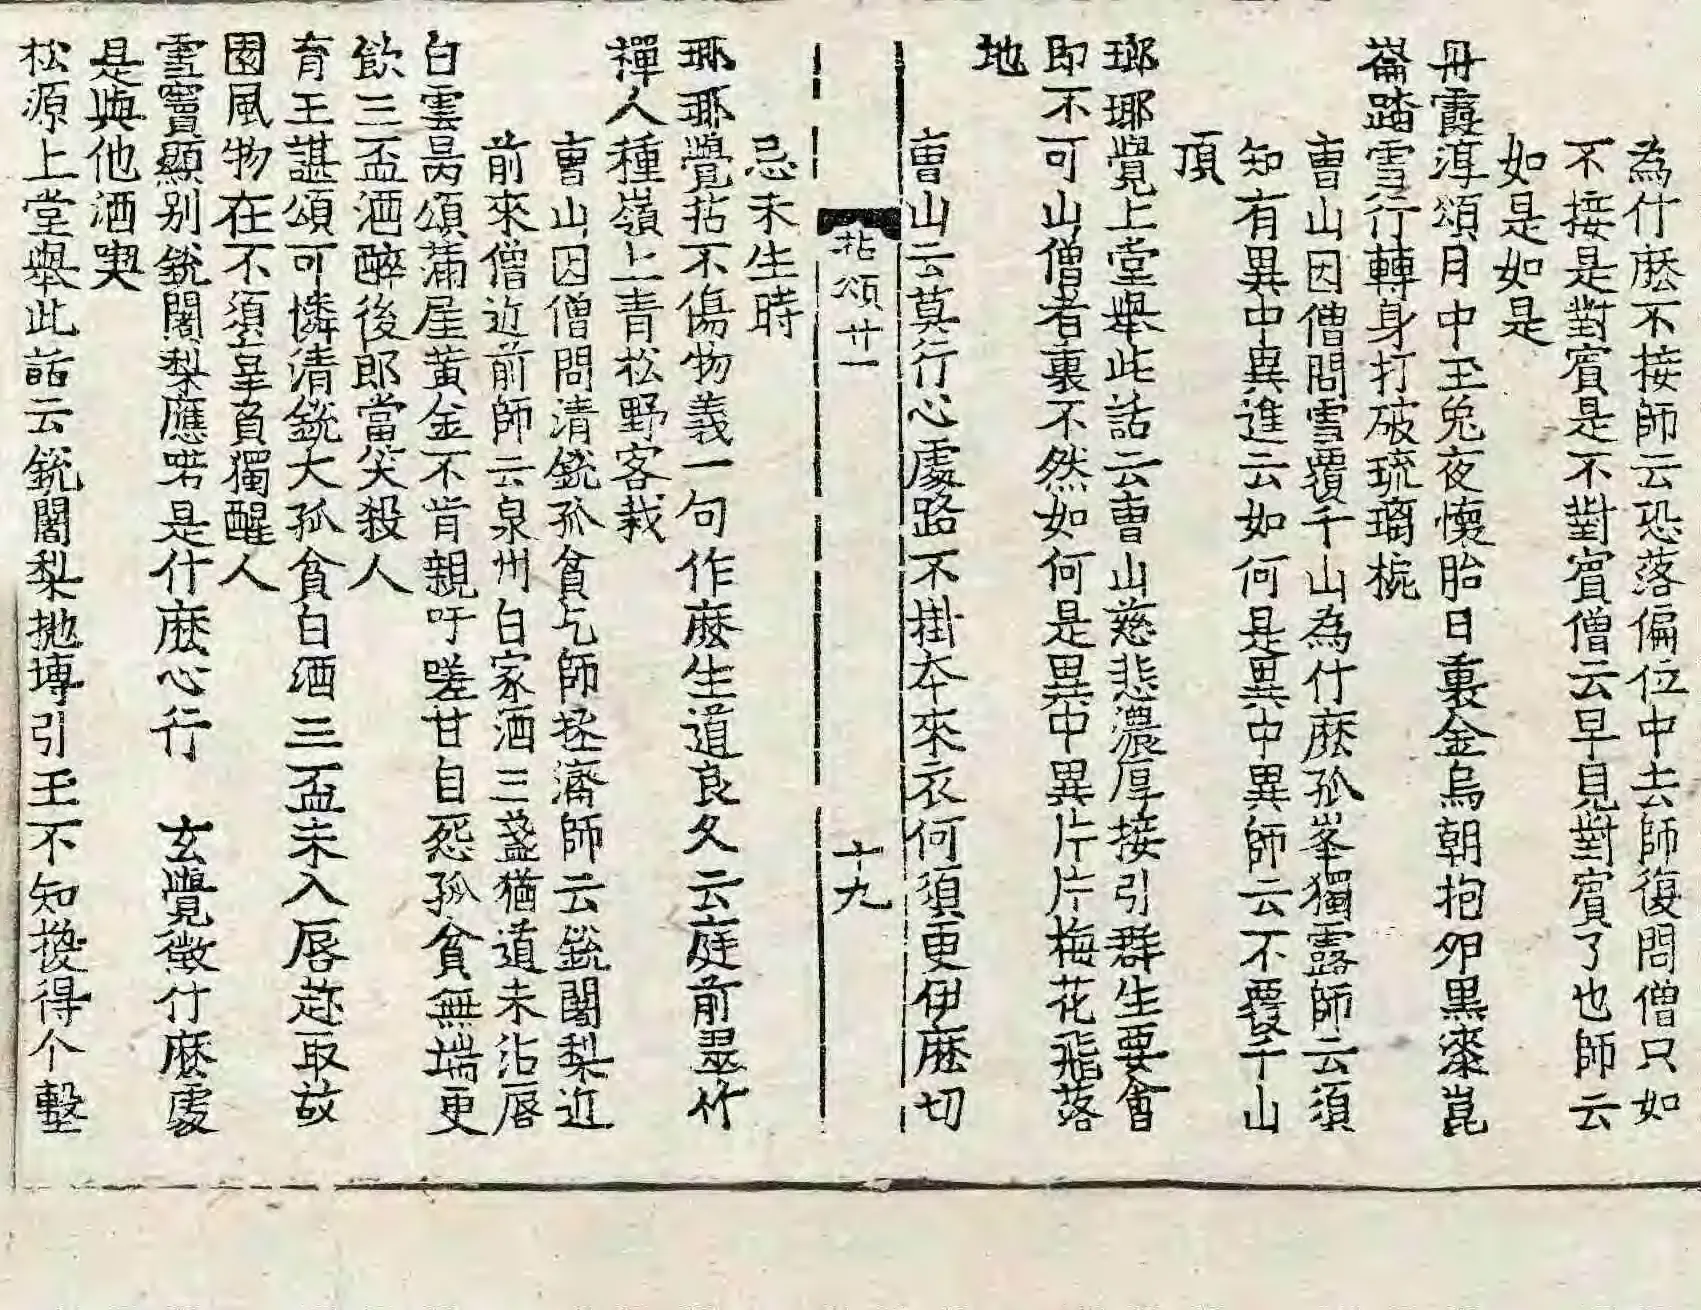 為什麽不接師云恐落偏位中去師復問僧只如
不接是對賓是不對賓僧云早見對賓了也師云
如是如是
丹霞淳頌月中玉兎夜懷胎日裏金烏朝抱卵黒漆崑
崙踏雪行轉身打破琉璃椀
曺山因僧問雪覆千山為什麽孤峯獨露師云須
知有異中異進云如何是異中異師云不覆千山
頂
瑯琊覺上堂舉此話云曺山慈悲濃厚接引群生要會
即不可山僧者裏不然如何是異中異片片梅花飛落
地
曺山云莫行心處路不掛夲來衣何須更伊麽切
拈頌廿一
十九
忌未生時
瑯琊覺拈不傷物義一句作麽生道良久云庭前翠竹
禪人種嶺上青松野客栽
曺山因僧問清銳孤貧乞師拯濟師云銳闍梨近
前來僧近前師云泉州白家酒三盞猶道未沾唇
白雲昺頌蒲屋黃金不肯親吁嗟甘自怨孤貧無端更
飲三盃酒醉後郎當笑殺人
育王諶頌可憐清銳大孤貧白酒三盃未入唇趂取故
園風物在不須辜負獨醒人
雪竇顯别銳闍梨應喏是什麽心行 玄覺徵什麽處
是與他酒喫
松源上堂舉此話云銳闍梨拋塼引玉不知換得个墼